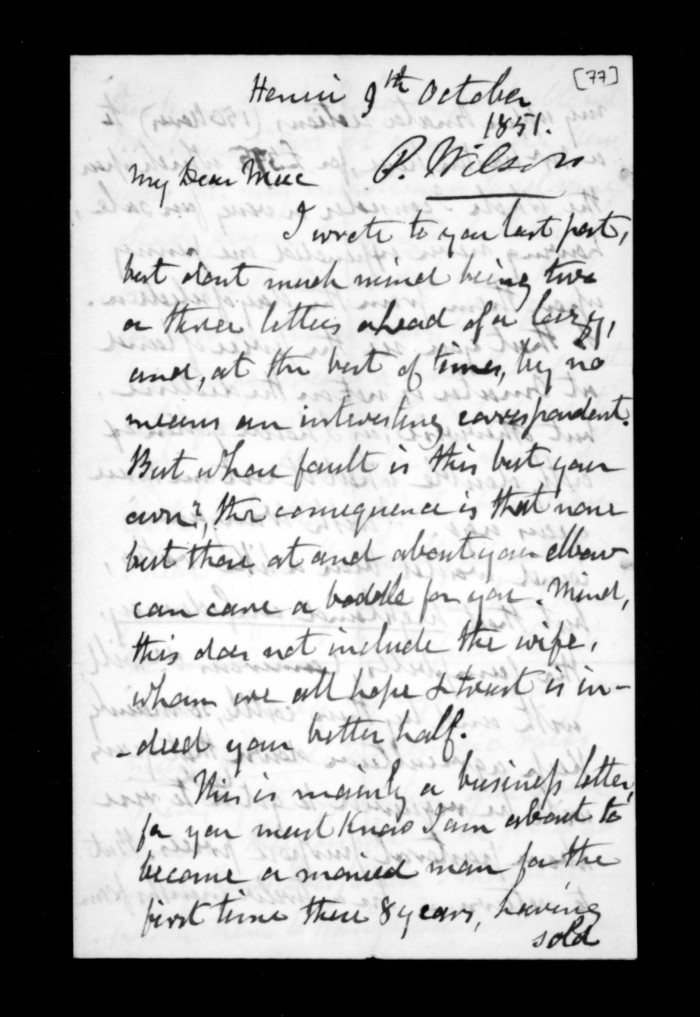 [77]
Henui 9th October
1851.
P. Wilson
My Dear Mac
I wrote to you last post,
but dont much mind being two
or three letters ahead of a lazy,
and, at the best of times, by no
means an interesting correspondent.
But whose fault is this but your
own?, the consequence is that none
but those at and about your elbow
can care a boddle for you. Mind,
this does not include the wife,
whom we all hope & trust is in-
-deed your better half.
This is mainly a business letter,
for you must know I am about to
become a monied man for the
first time these 8 years, having
sold